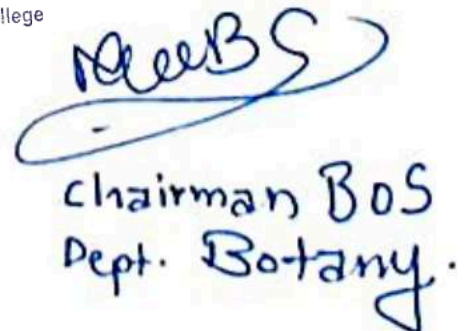 llege
Chairman BOS
Dept. Botany.